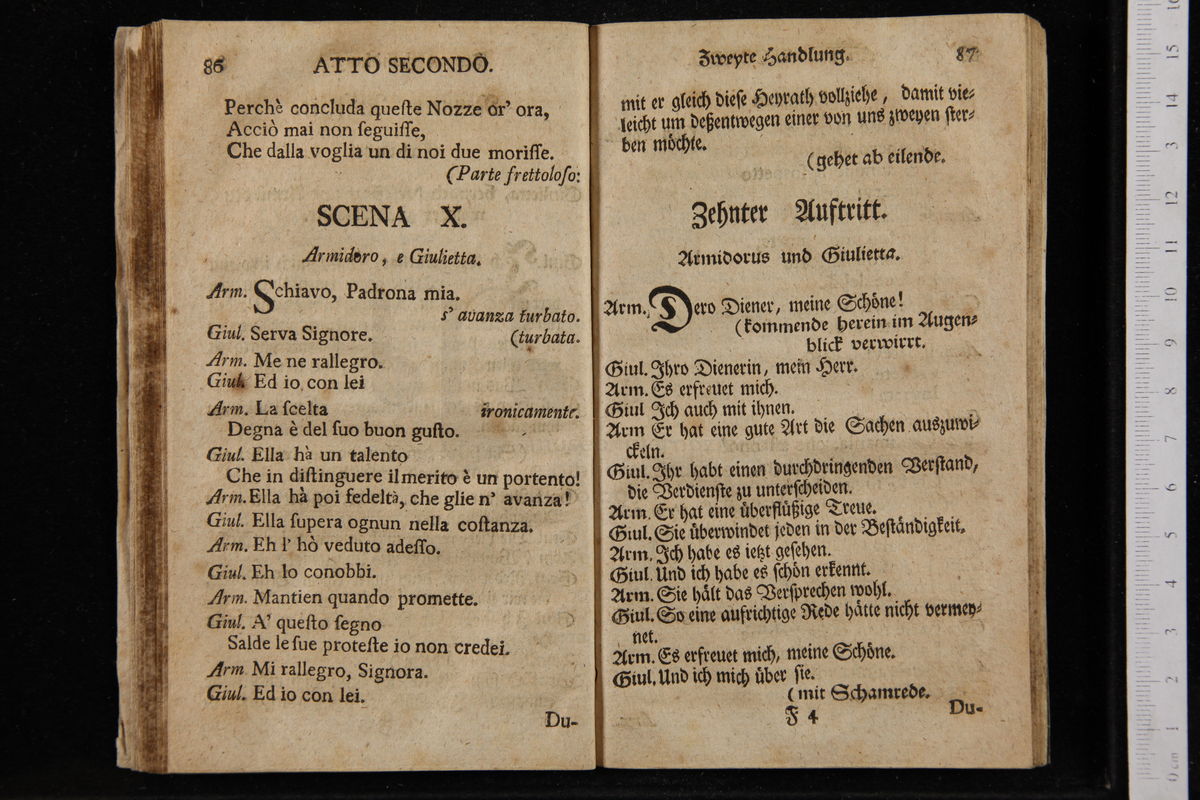 86 ATTO SECONDO.
Perchè concluda queſte Nozze or' ora,
Acciò mai non ſeguiſſe,
Che dalla voglia un di noi due moriſſe.
(Parte frettoloſo:
SCENA X.
Armidoro, e Giulietta.
Arm. Schiavo, Padrona mia.
s' avanza turbato.
Giul. Serva Signore. (turbata.
Arm. Me ne rallegro.
Giul. Ed io con lei
Arm. La ſcelta ironicamente.
Degna è del ſuo buon guſto.
Giul. Ella hà un talento
Che in diſtinguere il merito è un portento!
Arm. Ella hà poi fedeltà, che glie n' avanza!
Giul. Ella ſupera ognun nella coſtanza.
Arm. Eh l' hò veduto adeſſo.
Giul. Eh lo conobbi.
Arm. Mantien quando promette.
Giul. A' queſto ſegno
Salde le ſue proteſte io non credei.
Arm Mi rallegro, Signora.
Giul. Ed io con lei.
Du-
Zweyte Handlung. 87
mit er gleich dieſe Heyrath vollziehe, damit vie-
leicht um deßentwegen einer von uns zweyen ſter-
ben möchte.
(gehet ab eilende.
Zehnter Auftritt.
Armidorus und Giulietta.
Arm. Dero Diener, meine Schöne!
(kommende herein im Augen-
blick verwirrt.
Giul. Ihro Dienerin, mein Herr.
Arm. Es erfreuet mich.
Giul Ich auch mit ihnen.
Arm Er hat eine gute Art die Sachen auszuwi-
ckeln.
Giul. Ihr habt einen durchdringenden Verſtand,
die Verdienſte zu unterſcheiden.
Arm. Er hat eine überflüßige Treue.
Giul. Sie überwindet jeden in der Beſtändigkeit.
Arm. Ich habe es ietzt geſehen.
Giul. Und ich habe es ſchön erkennt.
Arm. Sie hält das Verſprechen wohl.
Giul. So eine aufrichtige Rede hätte nicht vermey-
net.
Arm. Es erfreuet mich, meine Schöne.
Giul. Und ich mich über ſie.
(mit Schamrede.
F 4 Du-
0 cm 1 2 3 4 5 6 7 8 9 10 11 12 13 14 15 16